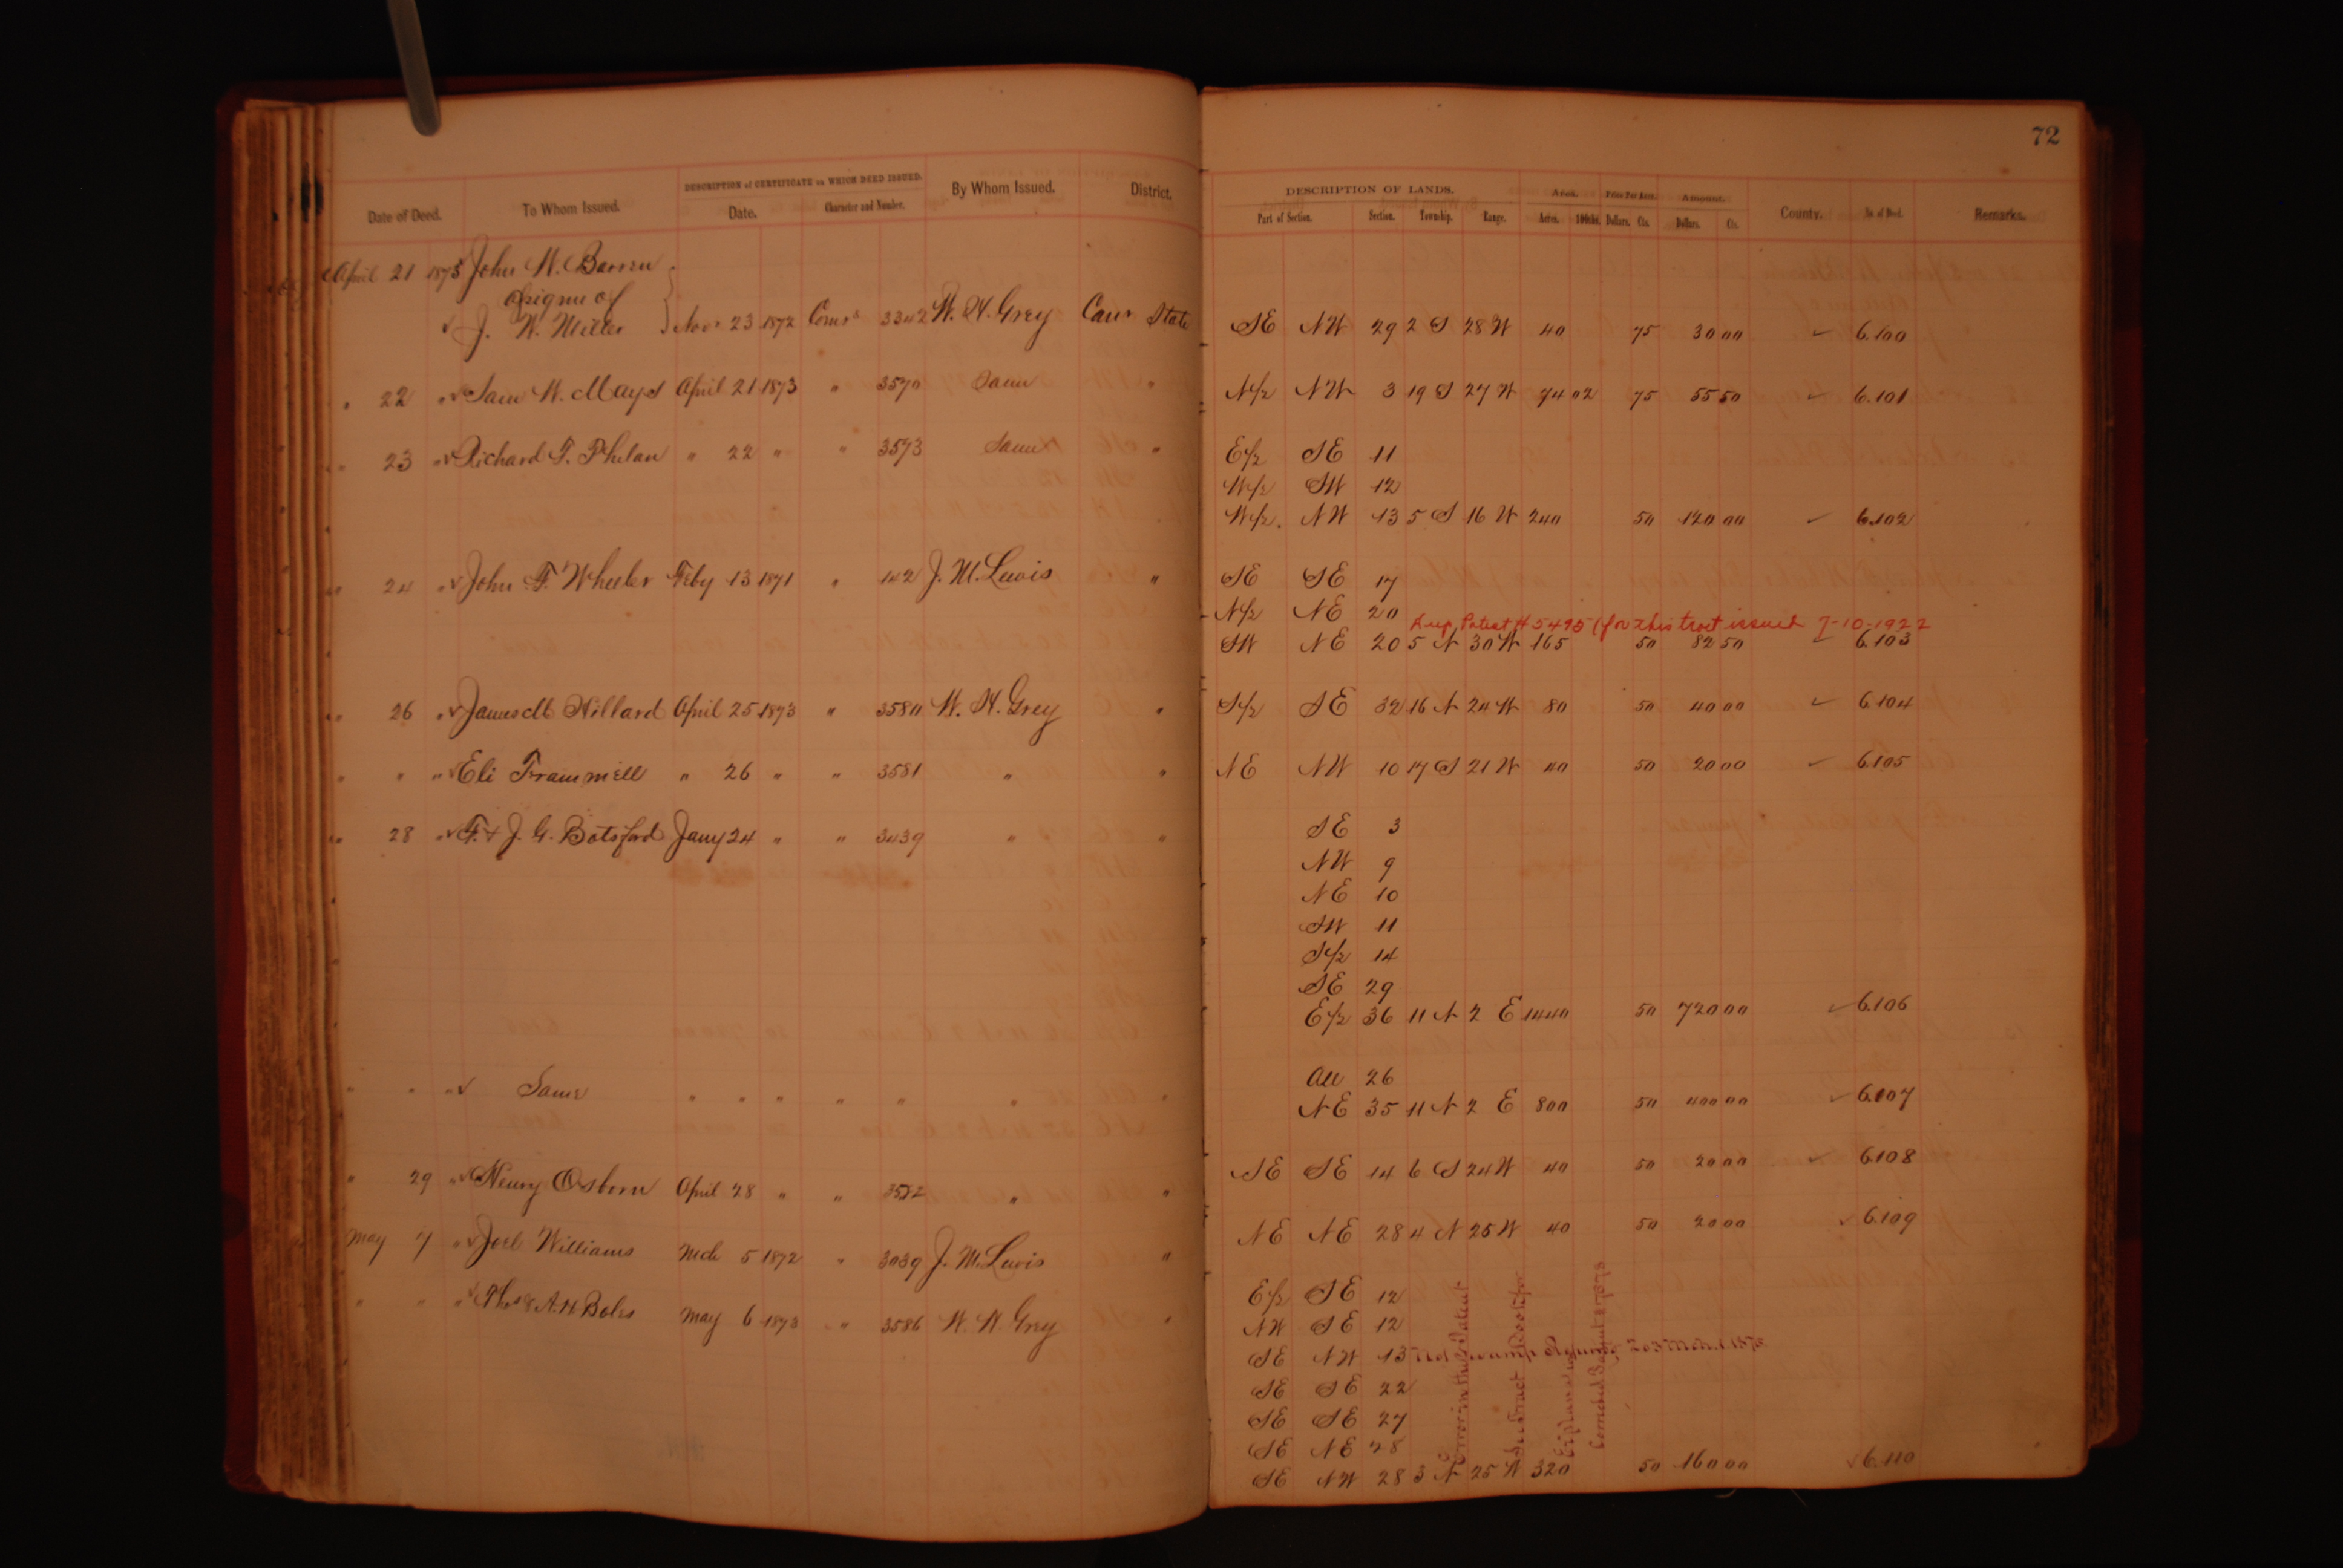 72
DESCRIPTION of CERTIFICATE on WHICH DEED ISSUED.
Date of Deed. To Whom Issued. Date. Character and Number. By Whom Issued. District.
DESCRIPTION OF LANDS. Area. Price Per Acre. Amount.
Part of Section. Section. Township. Range. Acres. 100ths. Dollars. Cts. Dollars. Cts. County. No. of Deed. Remarks.
April 21 1873 John W. Barren
assignee of
J. W. Miller Novr 23 1872 Comrs 3342 W. H. Grey Comr State SE NW 29 2 S 28 W 40 75 30 00 ✓ 6.100
" 22 " ✓ Sam W. Mays April 21 1873 " 3570 Same " N/2 NW 3 19 S 27 W 74 02 75 55 50 ✓ 6.101
" 23 " ✓ Richard F. Phelan " 22 " " 3573 Same " E/2 SE 11
W/2 SW 12
W/2 NW 13 5 S 16 W 240 50 120 00 ✓ 6.102
" 24 " ✓ John F. Wheeler Feby 13 1871 " 142 J. M. Lewis " SE SE 17
N/2 NE 20
Dup. Patent # 5495 (for this tract issued 7-10-1922
SW NE 20 5 N 30 W 165 50 82 50 ✓ 6.103
" 26 " ✓ James M Hillard April 25 1873 " 3580 W. H. Grey " S/2 SE 32 16 N 24 W 80 50 40 00 ✓ 6.104
" " " ✓ Eli Trammell " 26 " " 3581 " " NE NW 10 17 S 21 W 40 50 20 00 ✓ 6.105
" 28 " ✓ F. & J. G. Botsford Jany 24 " " 3439 " " SE 3
NW 9
NE 10
SW 11
S/2 14
SE 29
E/2 36 11 N 2 E 1440 50 720 00 ✓ 6.106
All 26
" " " ✓ Same " " " " " " " NE 35 11 N 2 E 800 50 400 00 ✓ 6.107
" 29 " ✓ Henry Osborn April 28 " " " " SE SE 14 6 S 24 W 40 50 20 00 ✓ 6.108
May 7 " ✓ Joel Williams Mch 5 1872 " 3039 J. M. Lewis " NE NE 28 4 N 25 W 40 50 20 00 ✓ 6.109
" " " ✓ Thos & A. H Boles May 6 1873 " 3586 W. H. Grey " E/2 SE 12
NW SE 12
SE NW 13 Not Swamp
SE SE 22
SE SE 27
SE NE 28
SE NW 28 3 N 25 W 320 50 160 00 ✓ 6.110
Error in this Patent